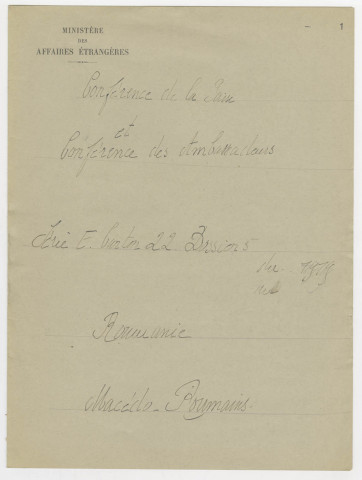 1
MINISTÈRE
DES
AFFAIRES ÉTRANGÈRES
Conférence de la Paix
et
Conférence des Ambassadeurs
Série E. Carton 22 Dossier 5
Roumanie
Macédo-Roumains.